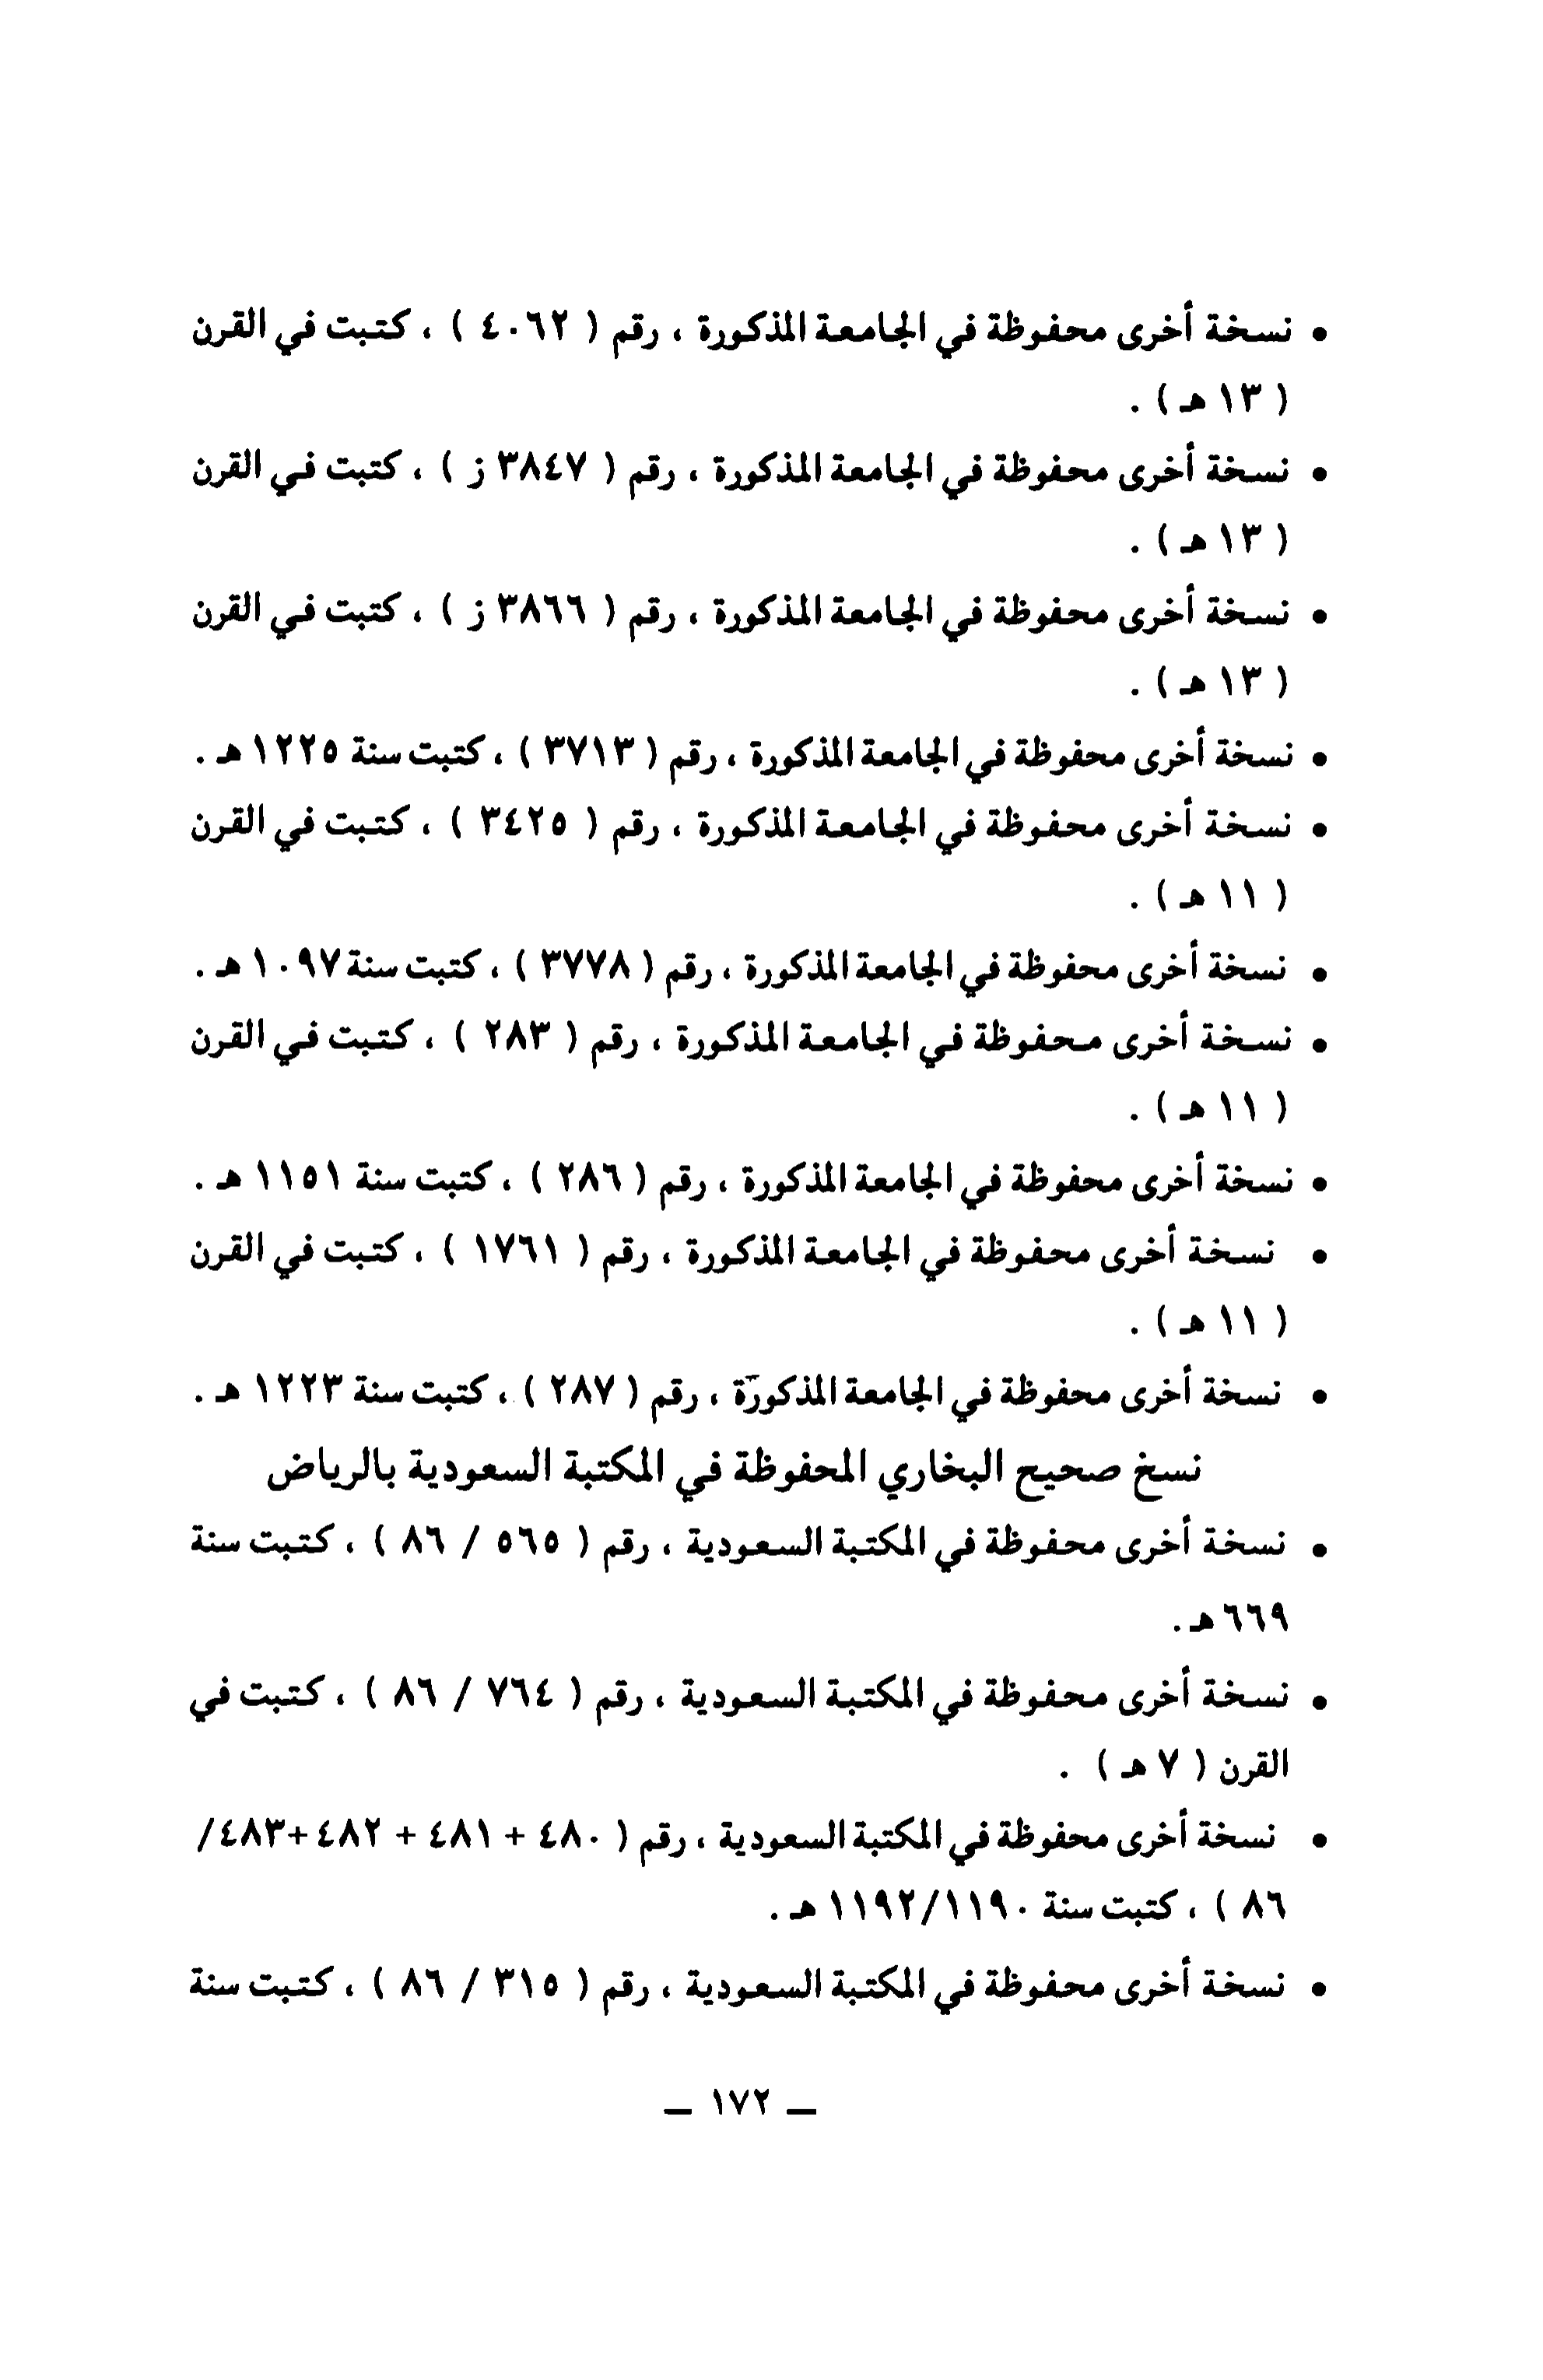 • نسخة أخرى محفوظة في الجامعة المذكورة ، رقم ( ٤٠٦٢ ) ، كتبت في القرن
( ١٣ هـ ) .
• نسخة أخرى محفوظة في الجامعة المذكورة ، رقم ( ٣٨٤٧ ز ) ، كتبت في القرن
( ١٣ هـ ) .
• نسخة أخرى محفوظة في الجامعة المذكورة ، رقم ( ٣٨٦٦ ز ) ، كتبت في القرن
( ١٣ هـ ) .
• نسخة أخرى محفوظة في الجامعة المذكورة ، رقم ( ٣٧١٣ ) ، كتبت سنة ١٢٢٥ هـ .
• نسخة أخرى محفوظة في الجامعة المذكورة ، رقم ( ٣٤٢٥ ) ، كتبت في القرن
( ١١ هـ ) .
• نسخة أخرى محفوظة في الجامعة المذكورة ، رقم ( ٣٧٧٨ ) ، كتبت سنة ١٠٩٧ هـ .
• نسخة أخرى محفوظة في الجامعة المذكورة ، رقم ( ٢٨٣ ) ، كتبت في القرن
( ١١ هـ ) .
• نسخة أخرى محفوظة في الجامعة المذكورة ، رقم ( ٢٨٦ ) ، كتبت سنة ١١٥١ هـ .
• نسخة أخرى محفوظة في الجامعة المذكورة ، رقم ( ١٧٦١ ) ، كتبت في القرن
( ١١ هـ ) .
• نسخة أخرى محفوظة في الجامعة المذكورة ، رقم ( ٢٨٧ ) ، كتبت سنة ١٢٢٣ هـ .
نسخ صحيح البخاري المحفوظة في المكتبة السعودية بالرياض
• نسخة أخرى محفوظة في المكتبة السعودية ، رقم ( ٥٦٥ / ٨٦ ) ، كتبت سنة
٦٦٩ هـ .
• نسخة أخرى محفوظة في المكتبة السعودية ، رقم ( ٧٦٤ / ٨٦ ) ، كتبت في
القرن ( ٧ هـ ) .
• نسخة أخرى محفوظة في المكتبة السعودية ، رقم ( ٤٨٠ + ٤٨١ + ٤٨٢ +٤٨٣/
٨٦ ) ، كتبت سنة ١١٩٢/١١٩٠ هـ .
• نسخة أخرى محفوظة في المكتبة السعودية ، رقم ( ٣١٥ / ٨٦ ) ، كتبت سنة
— ١٧٢ —